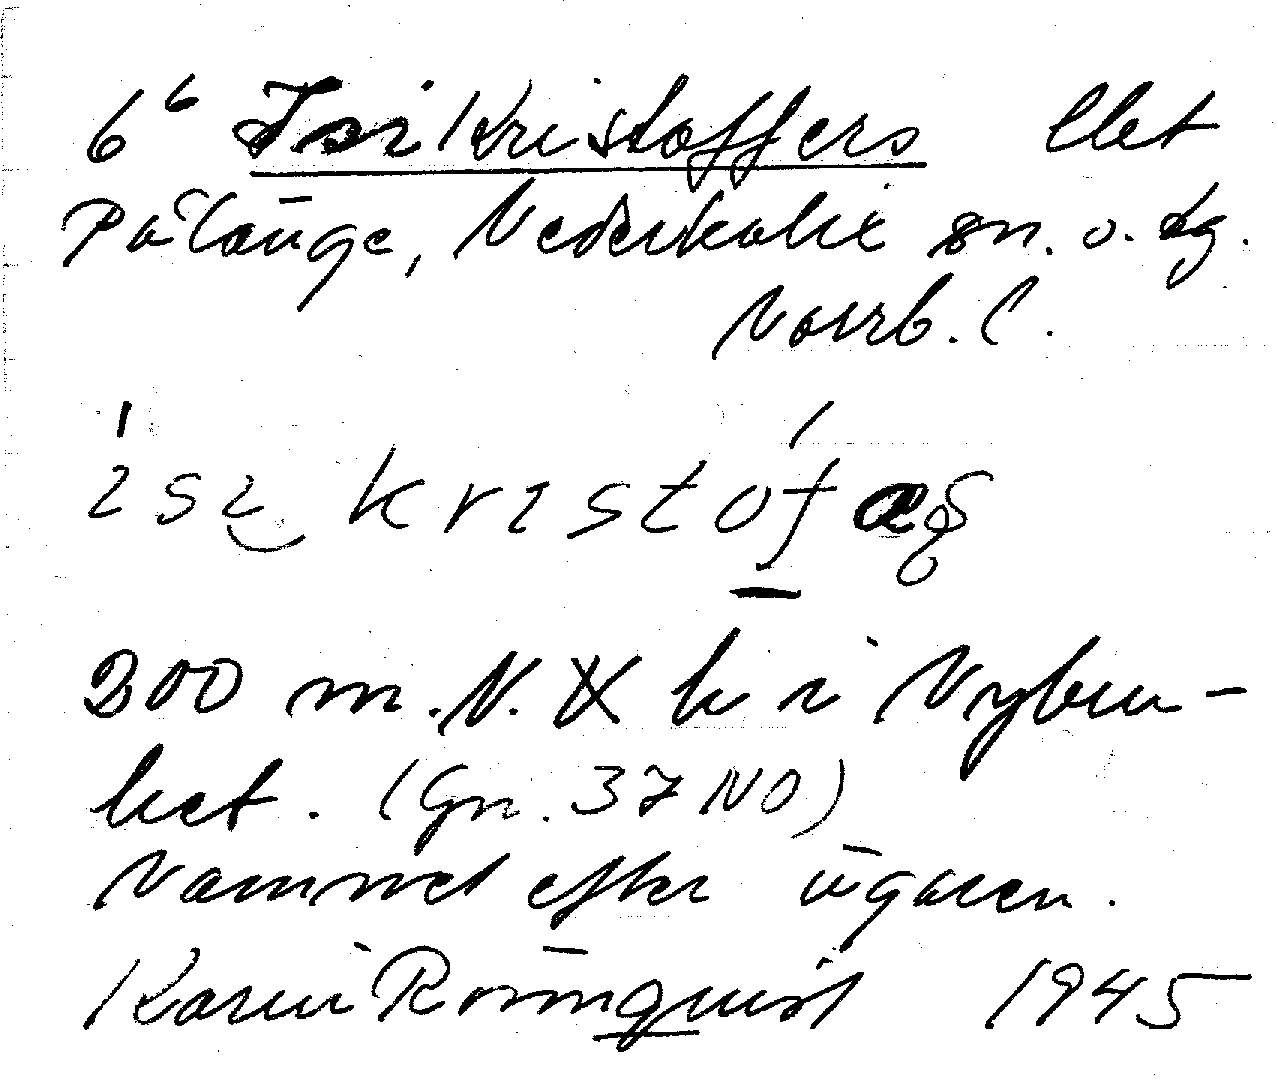 6⁶ Isikristoffers Ebet
Pålänge, Nederkalix sn. o. tg.
Norrb. l.
isi kristofəs
200 m. N. X k i Nybru-
ket. (Gn. 37 NO)
Namnet efter ägaren.
Karin Rönnquist 1945